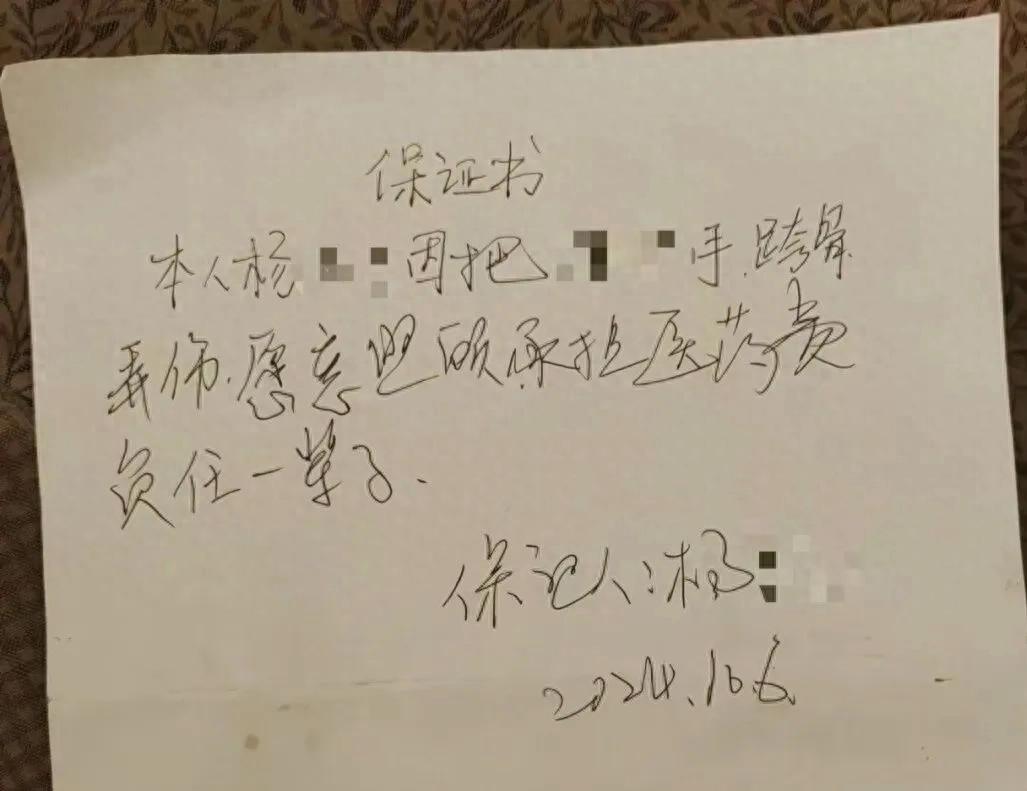 保证书
本人杨 因把 手.跨骨
弄伤.愿意 承担医药费
负任一辈子.
保证人:杨
2024.10.6.